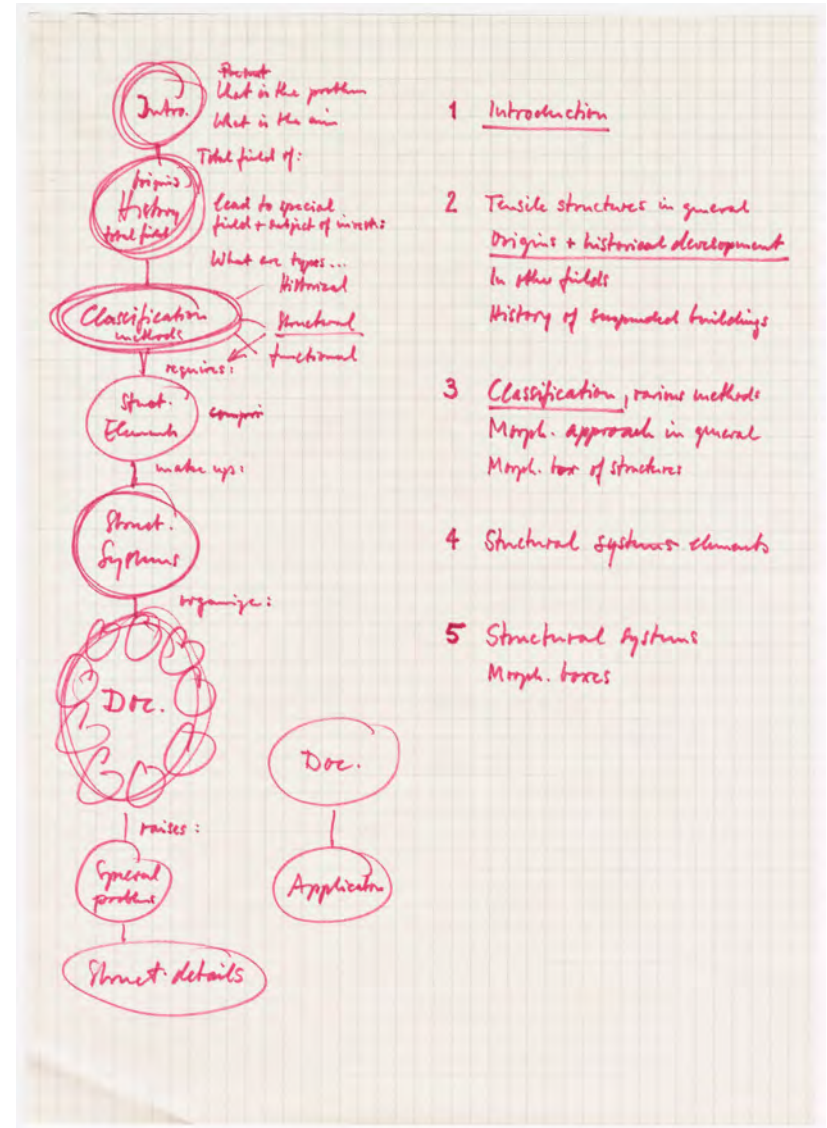 Intro.
What is the problem
What is the aim
Total field of:
Origins
History
total field
lead to special
field + subject of invest:
What are types...
Historical
Classification
methods
Structural
functional
requires:
Struct.
Elements
make up:
Struct.
Systems
organize:
Doc.
raises:
Special
problems
Struct. details
Doc.
Application
1 Introduction
2 Tensile structures in general
Origins + historical development
In other fields
History of suspended buildings
3 Classification, various methods
Morph. approach in general
Morph. box of structures
4 Structural systems elements
5 Structural systems
Morph. boxes